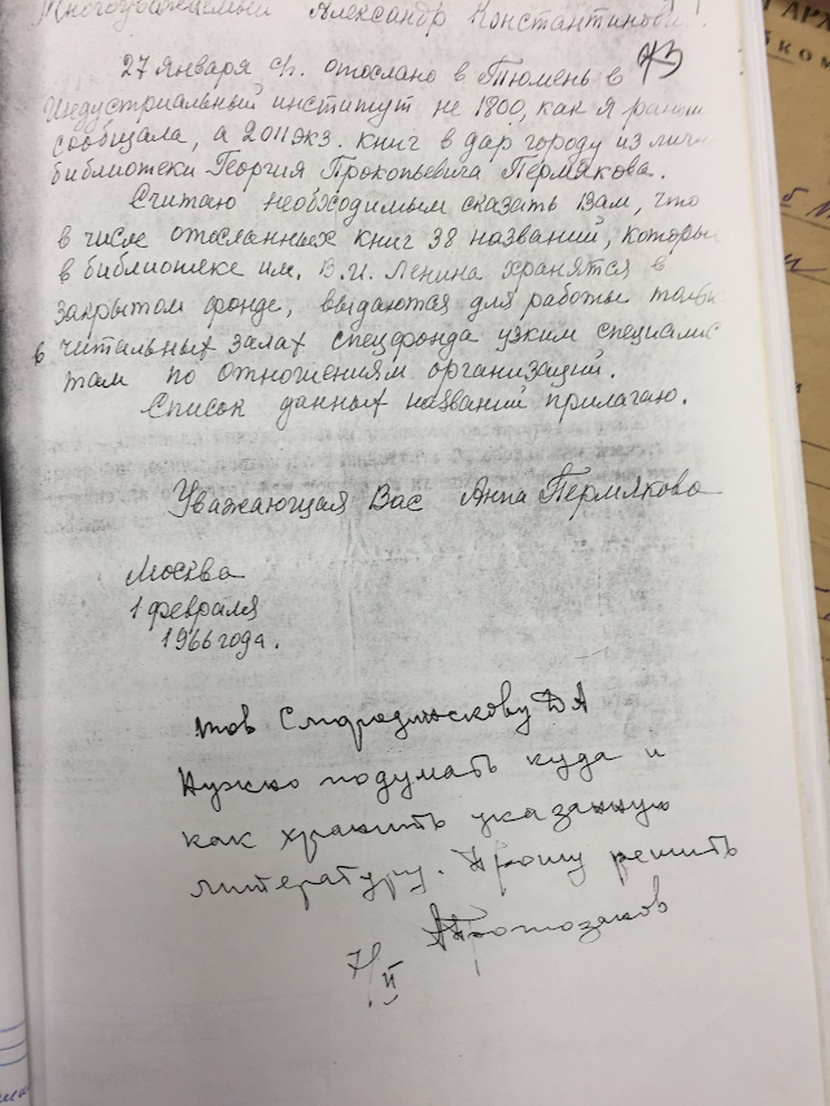 Многоуважаемый Александр Константинович!
73
27 января с/г. отослано в Тюмень в
Индустриальный институт не 1800, как я раньш
сообщала, а 2011 экз. книг в дар городу из личн
библиотеки Георгия Прокопьевича Пермякова.
Считаю необходимым сказать Вам, что
в числе отосланных книг 38 названий, которы
в библиотеке им. В.И. Ленина хранятся в
закрытом фонде, выдаются для работы только
в читальных залах спецфонда узким специалис
там по отношениям организаций.
Список данных названий прилагаю.
Уважающая Вас Анна Пермякова
Москва
1 февраля
1966 года.
тов Смородинскову Д А
Нужно подумать куда и
как хранить указанную
литературу. Прошу решить
АПротозанов
7/II
АРХ
КОМ